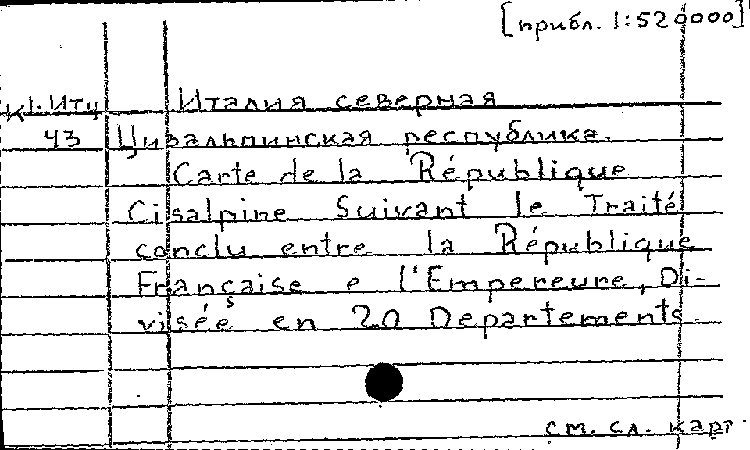 [прибл. 1:520000]
Италия северная
К1. Ити
43 Цизальпинская республика.
Carte de la République
Cisalpine Suivant le Traité
conclu entre la République
Française e l'Empereure, Di-
visée en 20 Departements
см. сл. карт.